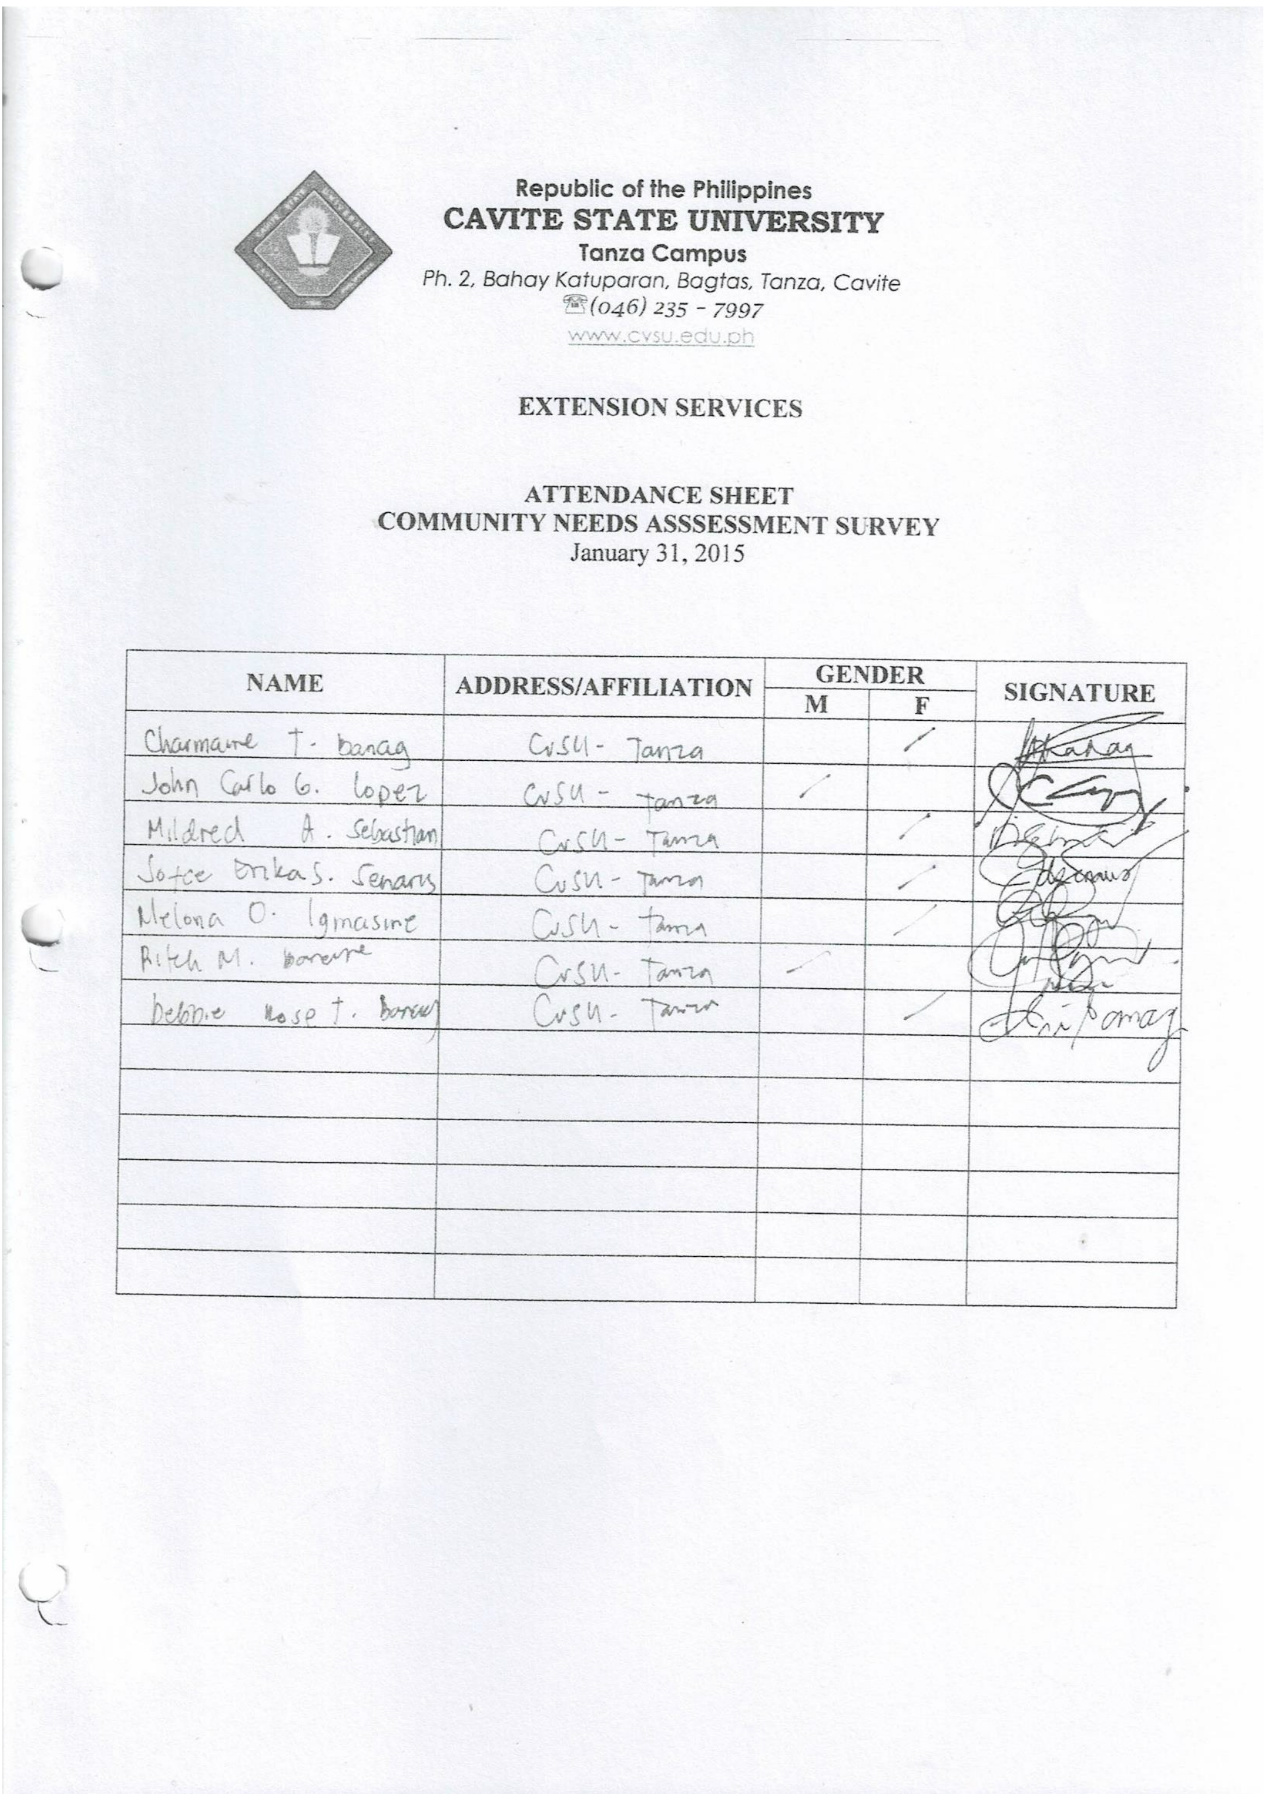 Republic of the Philippines
CAVITE STATE UNIVERSITY
Tanza Campus
Ph. 2, Bahay Katuparan, Bagtas, Tanza, Cavite
☏(046) 235 - 7997
www.cvsu.edu.ph
EXTENSION SERVICES
ATTENDANCE SHEET
COMMUNITY NEEDS ASSSESSMENT SURVEY
January 31, 2015
NAME ADDRESS/AFFILIATION GENDER SIGNATURE
M F
Charmaine T. Banag CvSU - Tanza
John Carlo G. Lopez CvSU - Tanza
Mildred A. Sebastian CvSU - Tanza
Joyce Erika S. Senaris CvSU - Tanza
Melona O. Igmasine CvSU - Tanza
Ritch M. CvSU - Tanza
Debbie Rose T. Banag CvSU - Tanza